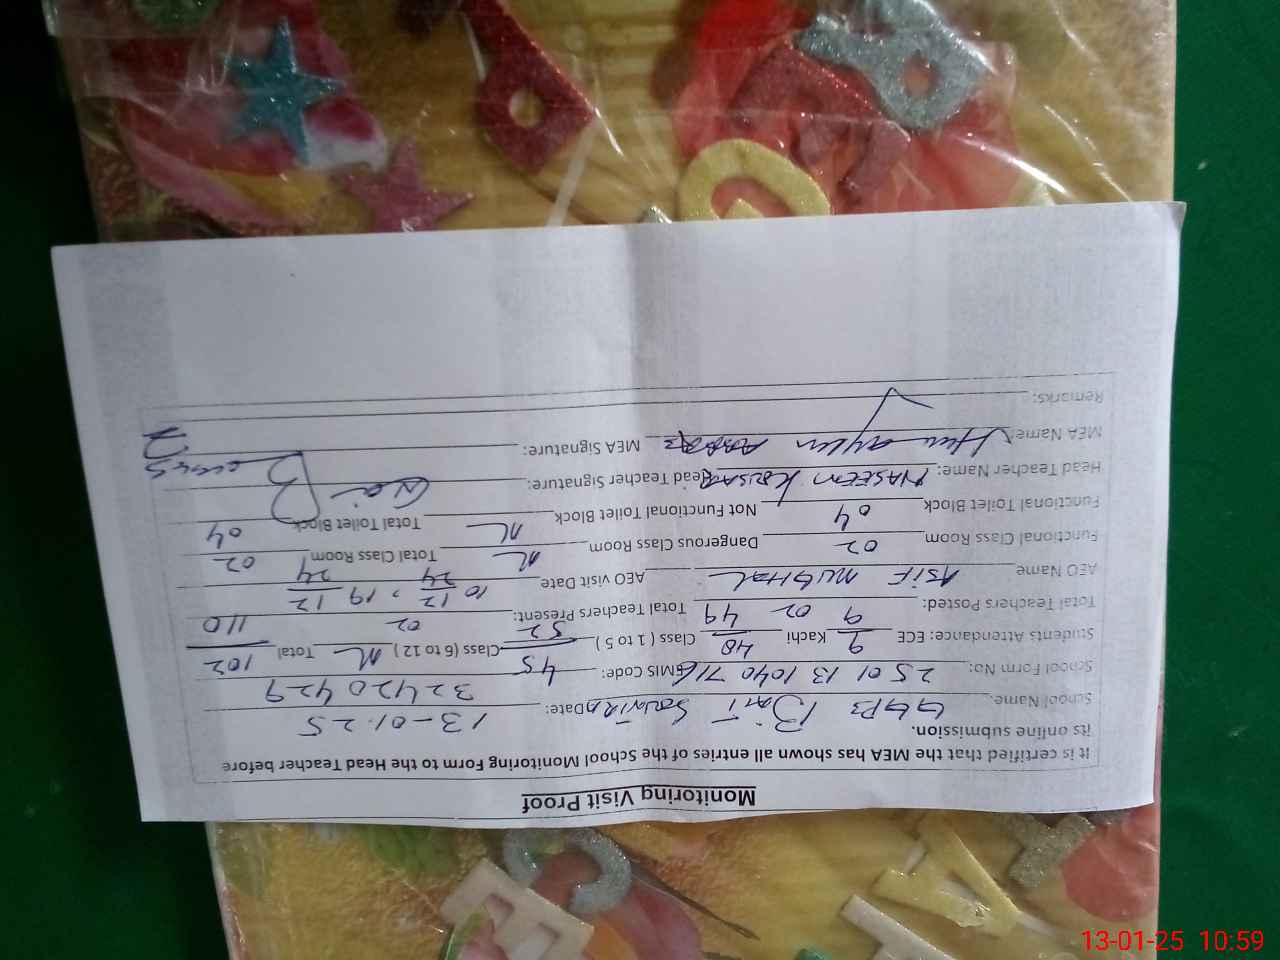 Monitoring Visit Proof
It is certified that the MEA has shown all entries of the School Monitoring Form to the Head Teacher before
its online submission.
School Name: GGPS BAIT SOUVIRA Date: 13-01-25
School Form No: 25 01 13 1040 716 EMIS Code: 32420429
Students Attendance: ECE 9/9 Kachi 48/49 Class ( 1 to 5 ) 45/52 Class ( 6 to 12 ) N Total 102/110
Total Teachers Posted: 02 Total Teachers Present: 02
AEO Name ASIF MUGHAL AEO visit Date 10/12/24, 19/12/24
Functional Class Room 02 Dangerous Class Room N Total Class Room 02
Functional Toilet Block 04 Not Functional Toilet Block N Total Toilet Block 04
Head Teacher Name: NASEEM KOUSAR Head Teacher Signature:
MEA Name: Humayun Abbas MEA Signature:
Remarks:
13-01-25 10:59